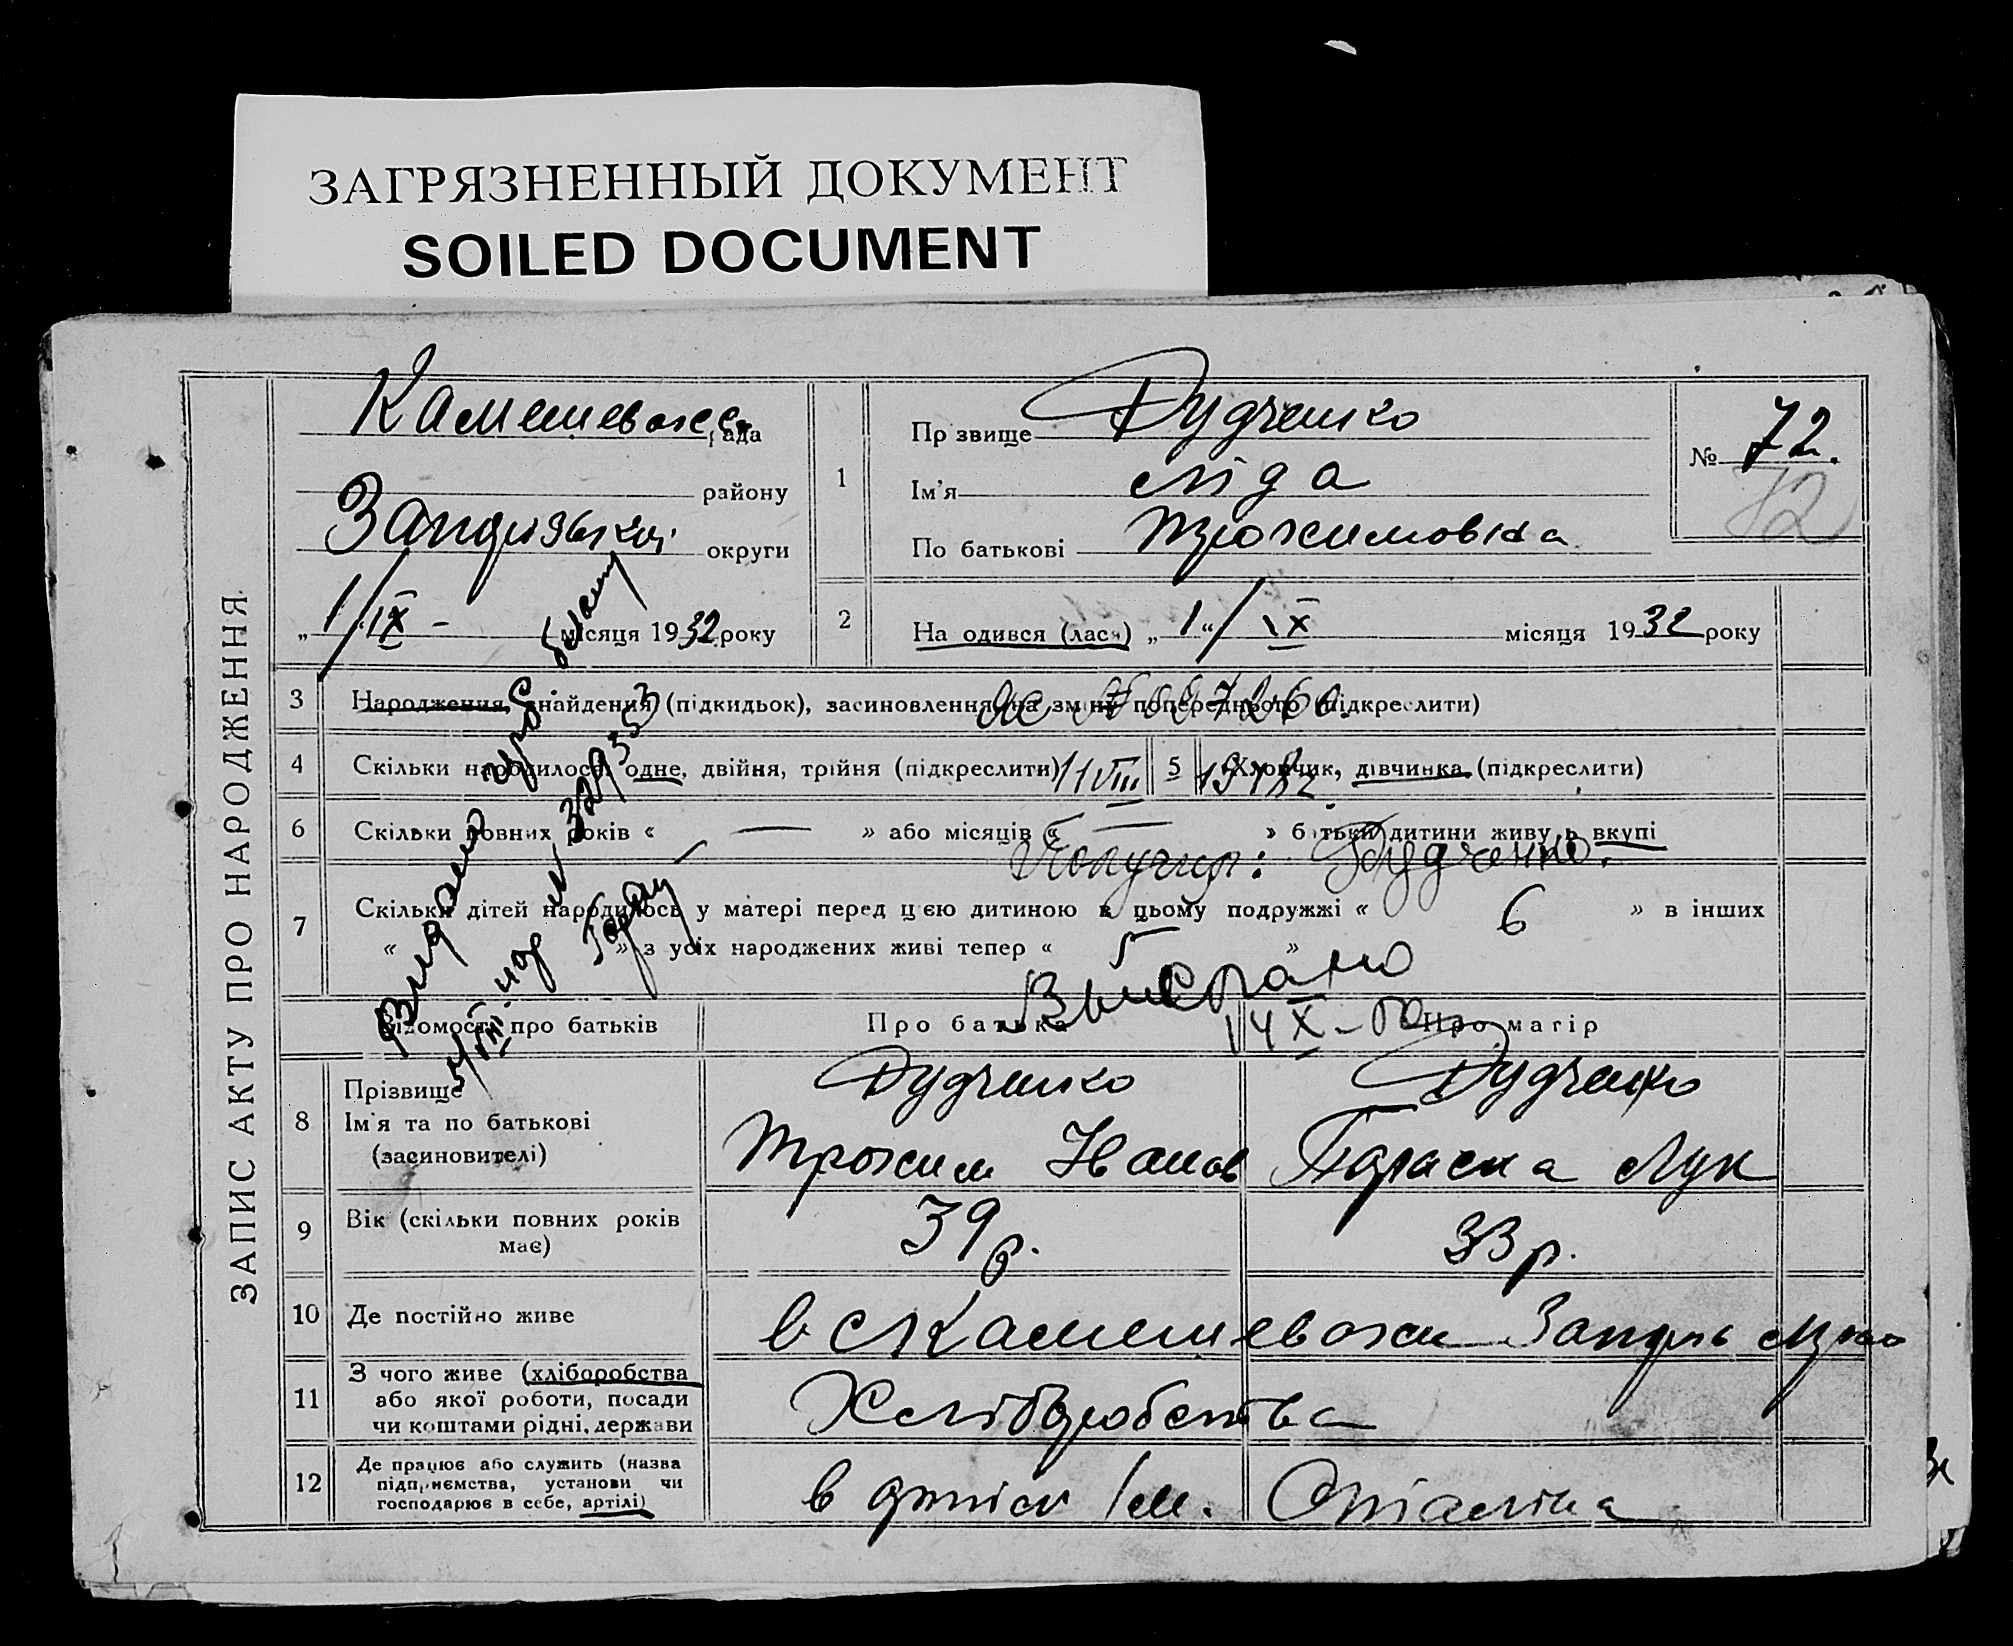 ЗАГРЯЗНЕННЫЙ ДОКУМЕНТ
SOILED DOCUMENT
ЗАПИС АКТУ ПРО НАРОДЖЕННЯ
рада
району
округи
„1/IX - місяця 1932 року
1
Пр звище Дудченко
Ім'я Ліда
По батькові Трохимовна
№ 72.
72
2
На одився (лася) „1“/IX місяця 1932 року
3 Народження, знайдення (підкидьок), засиновлення, на зміну попереднього (підкреслити)
4 Скільки народилося: одне, двійня, трійня (підкреслити)
11 VIII
5 Хлопчик, дівчинка (підкреслити)
6 Скільки повних років « — » або місяців « — » батьки дитини живуть вкупі
Получил: Дудченко.
7 Скільки дітей народилось у матері перед цією дитиною в цьому подружжі « 6 » в інших
« » з усіх народжених живі тепер « 5 »
Выбрано
14 X - 50
Відомості про батьків
Про батька
Про матір
8 Прізвище
Ім'я та по батькові
(засиновителі)
Дудченко
Трохим Иванов
Дудченко
Параска Лук
9 Вік (скільки повних років має)
39 р.
33 р.
10 Де постійно живе
в с Камешеваха
11 З чого живе (хліборобства
або якої роботи, посади
чи коштами рідні, держави
Хліборобства
12 Де працює або служить (назва
підприємства, установи чи
господарює в себе, артілі)
в артілі Ім. Сталіна
Видано